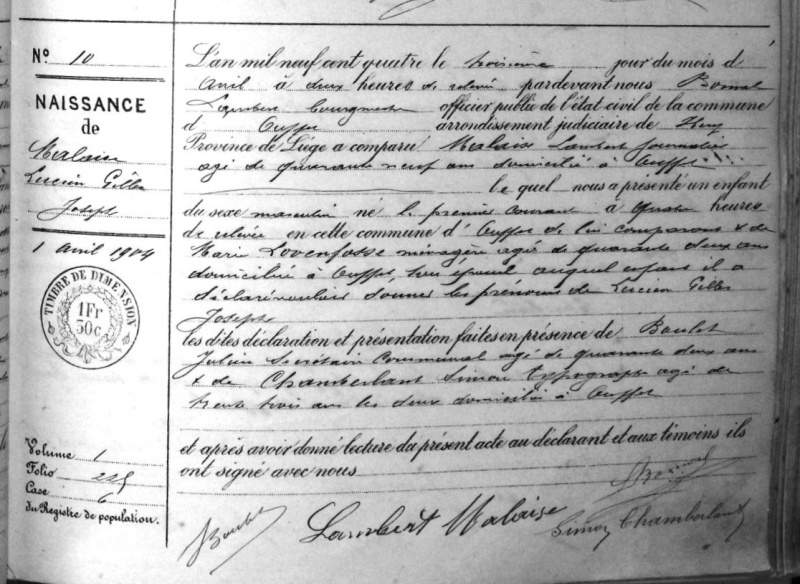 N° 10
NAISSANCE
de
Malaise
Lucien Gilles
Joseph
1 avril 1904
TIMBRE DE DIMENSION
1Fr
30c
Volume 1
Folio 225
Case 6
du Registre de population.
L'an mil neuf cent quatre le troisième jour du mois d
avril à deux heures de relevée pardevant nous Bonnal
Lambert bourgmestre officier public de l'état civil de la commune
d' Ouffet arrondissement judiciaire de Huy
Province de Liége a comparu Malaise Lambert journalier
agé de quarante neuf ans domicilié à Ouffet
le quel nous a présenté un enfant
du sexe masculin né le premier courant à quatre heures
de relevée en cette commune d' Ouffet de lui comparant & de
Marie Lovenfosse ménagère agée de quarante deux ans
domiciliée à Ouffet, son épouse auquel enfant il a
déclaré vouloir donner les prénoms de Lucien Gilles
Joseph
les dites déclaration et présentation faites en présence de Boulet
Julien Secrétaire Communal agé de quarante deux ans
& de Chamberlant Simon typographe agé de
trente trois ans les deux domiciliés à Ouffet
et après avoir donné lecture du présent acte au déclarant et aux témoins ils
ont signé avec nous
JBoulet Lambert Malaise Simon Chamberlant